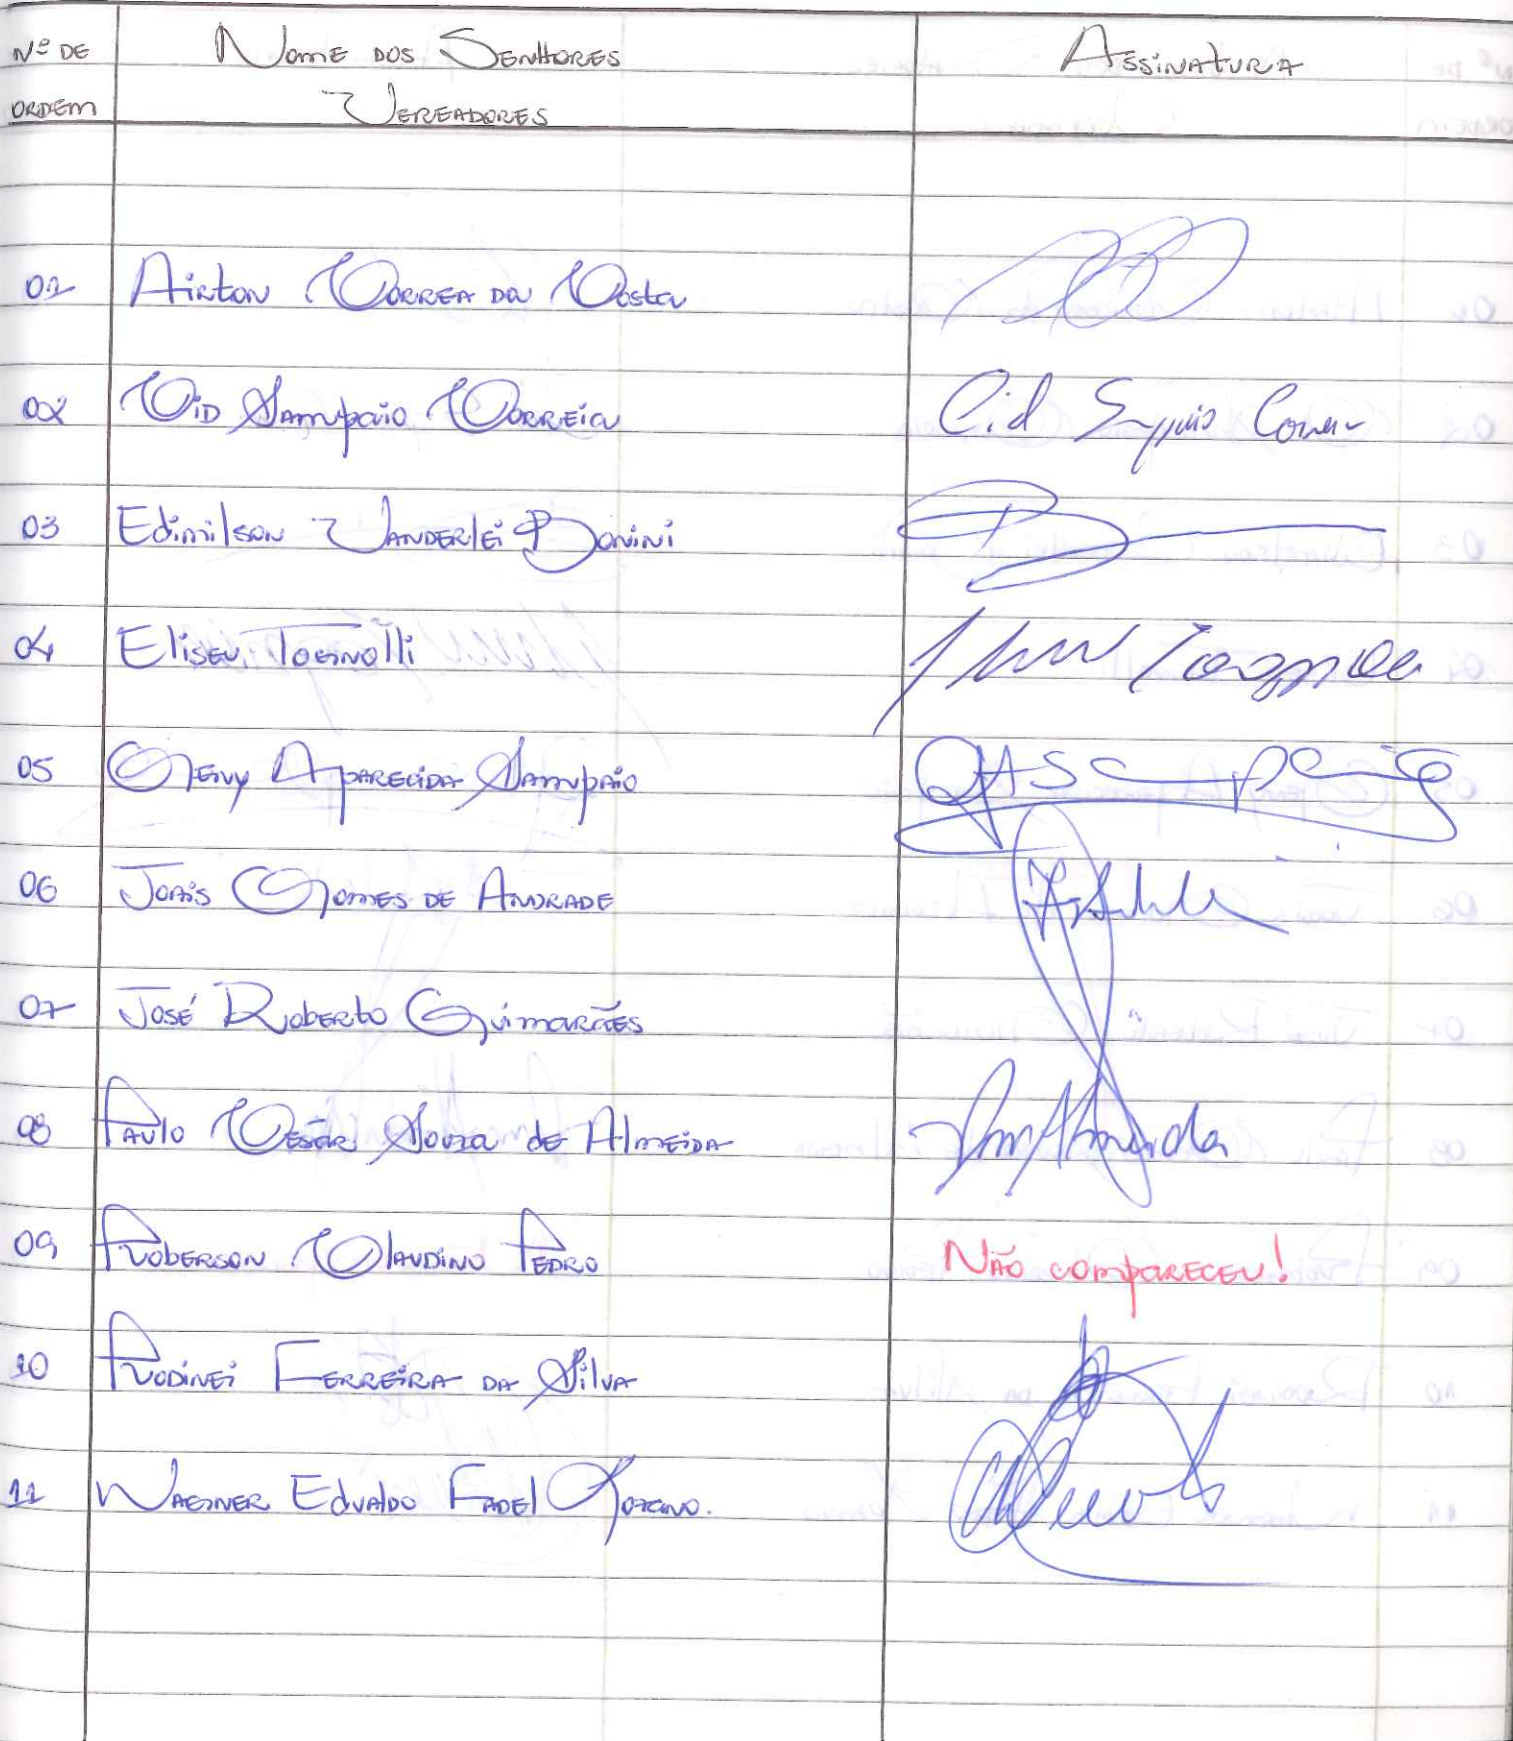 Nº DE Nome dos Senhores Assinatura
ORDEM Vereadores
01 Airton Correa da Costa
02 Cid Sampaio Correia Cid
03 Edimilson Vanderlei Bonini
04 Eliseu Tognolli
05 Geny Aparecida Sampaio
06 Joais Gomes de Andrade
07 José Roberto Guimarães
08 Paulo César Souza de Almeida
09 Roberson Claudino Pedro Não compareceu!
10 Rodinei Ferreira da Silva
11 Wagner Edvaldo Fadel